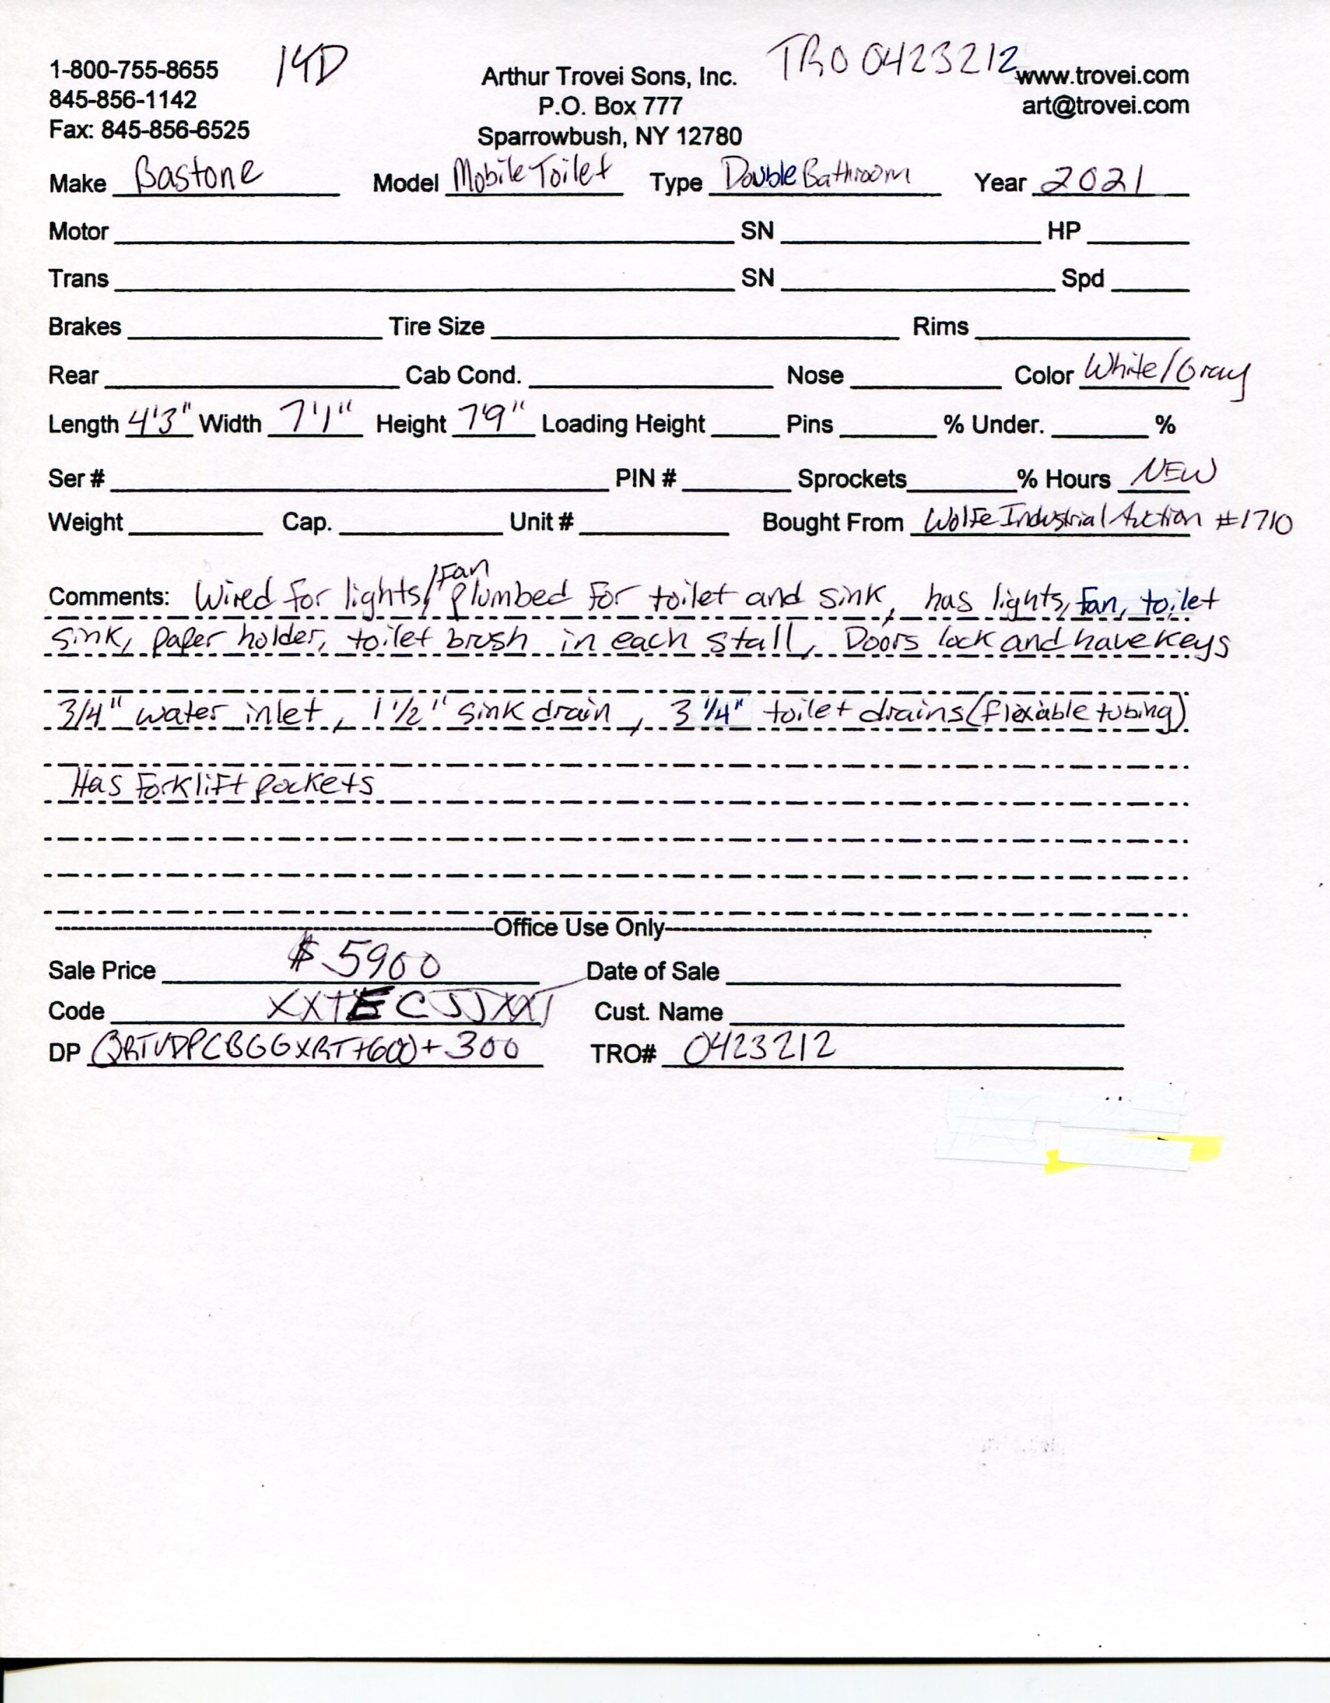 1-800-755-8655 14D Arthur Trovei Sons, Inc. TRO 0423212 www.trovei.com
845-856-1142 P.O. Box 777 art@trovei.com
Fax: 845-856-6525 Sparrowbush, NY 12780
Make Bastone Model Mobile Toilet Type Double Bathroom Year 2021
Motor SN HP
Trans SN Spd
Brakes Tire Size Rims
Rear Cab Cond. Nose Color White/Gray
Length 4'3" Width 7'1" Height 7'9" Loading Height Pins % Under. %
Ser # PIN # Sprockets % Hours NEW
Weight Cap. Unit # Bought From Wolfe Industrial Auction #1710
Comments: Wired for lights/Fan plumbed for toilet and sink, has lights, fan, toilet
sink, paper holder, toilet brush in each stall, Doors lock and have keys
3/4" water inlet, 1 1/2" sink drain, 3 1/4" toilet drains (flexable tubing)
Has Forklift pockets
Office Use Only
Sale Price $5900 Date of Sale
Code Cust. Name
DP +300 TRO# 0423212